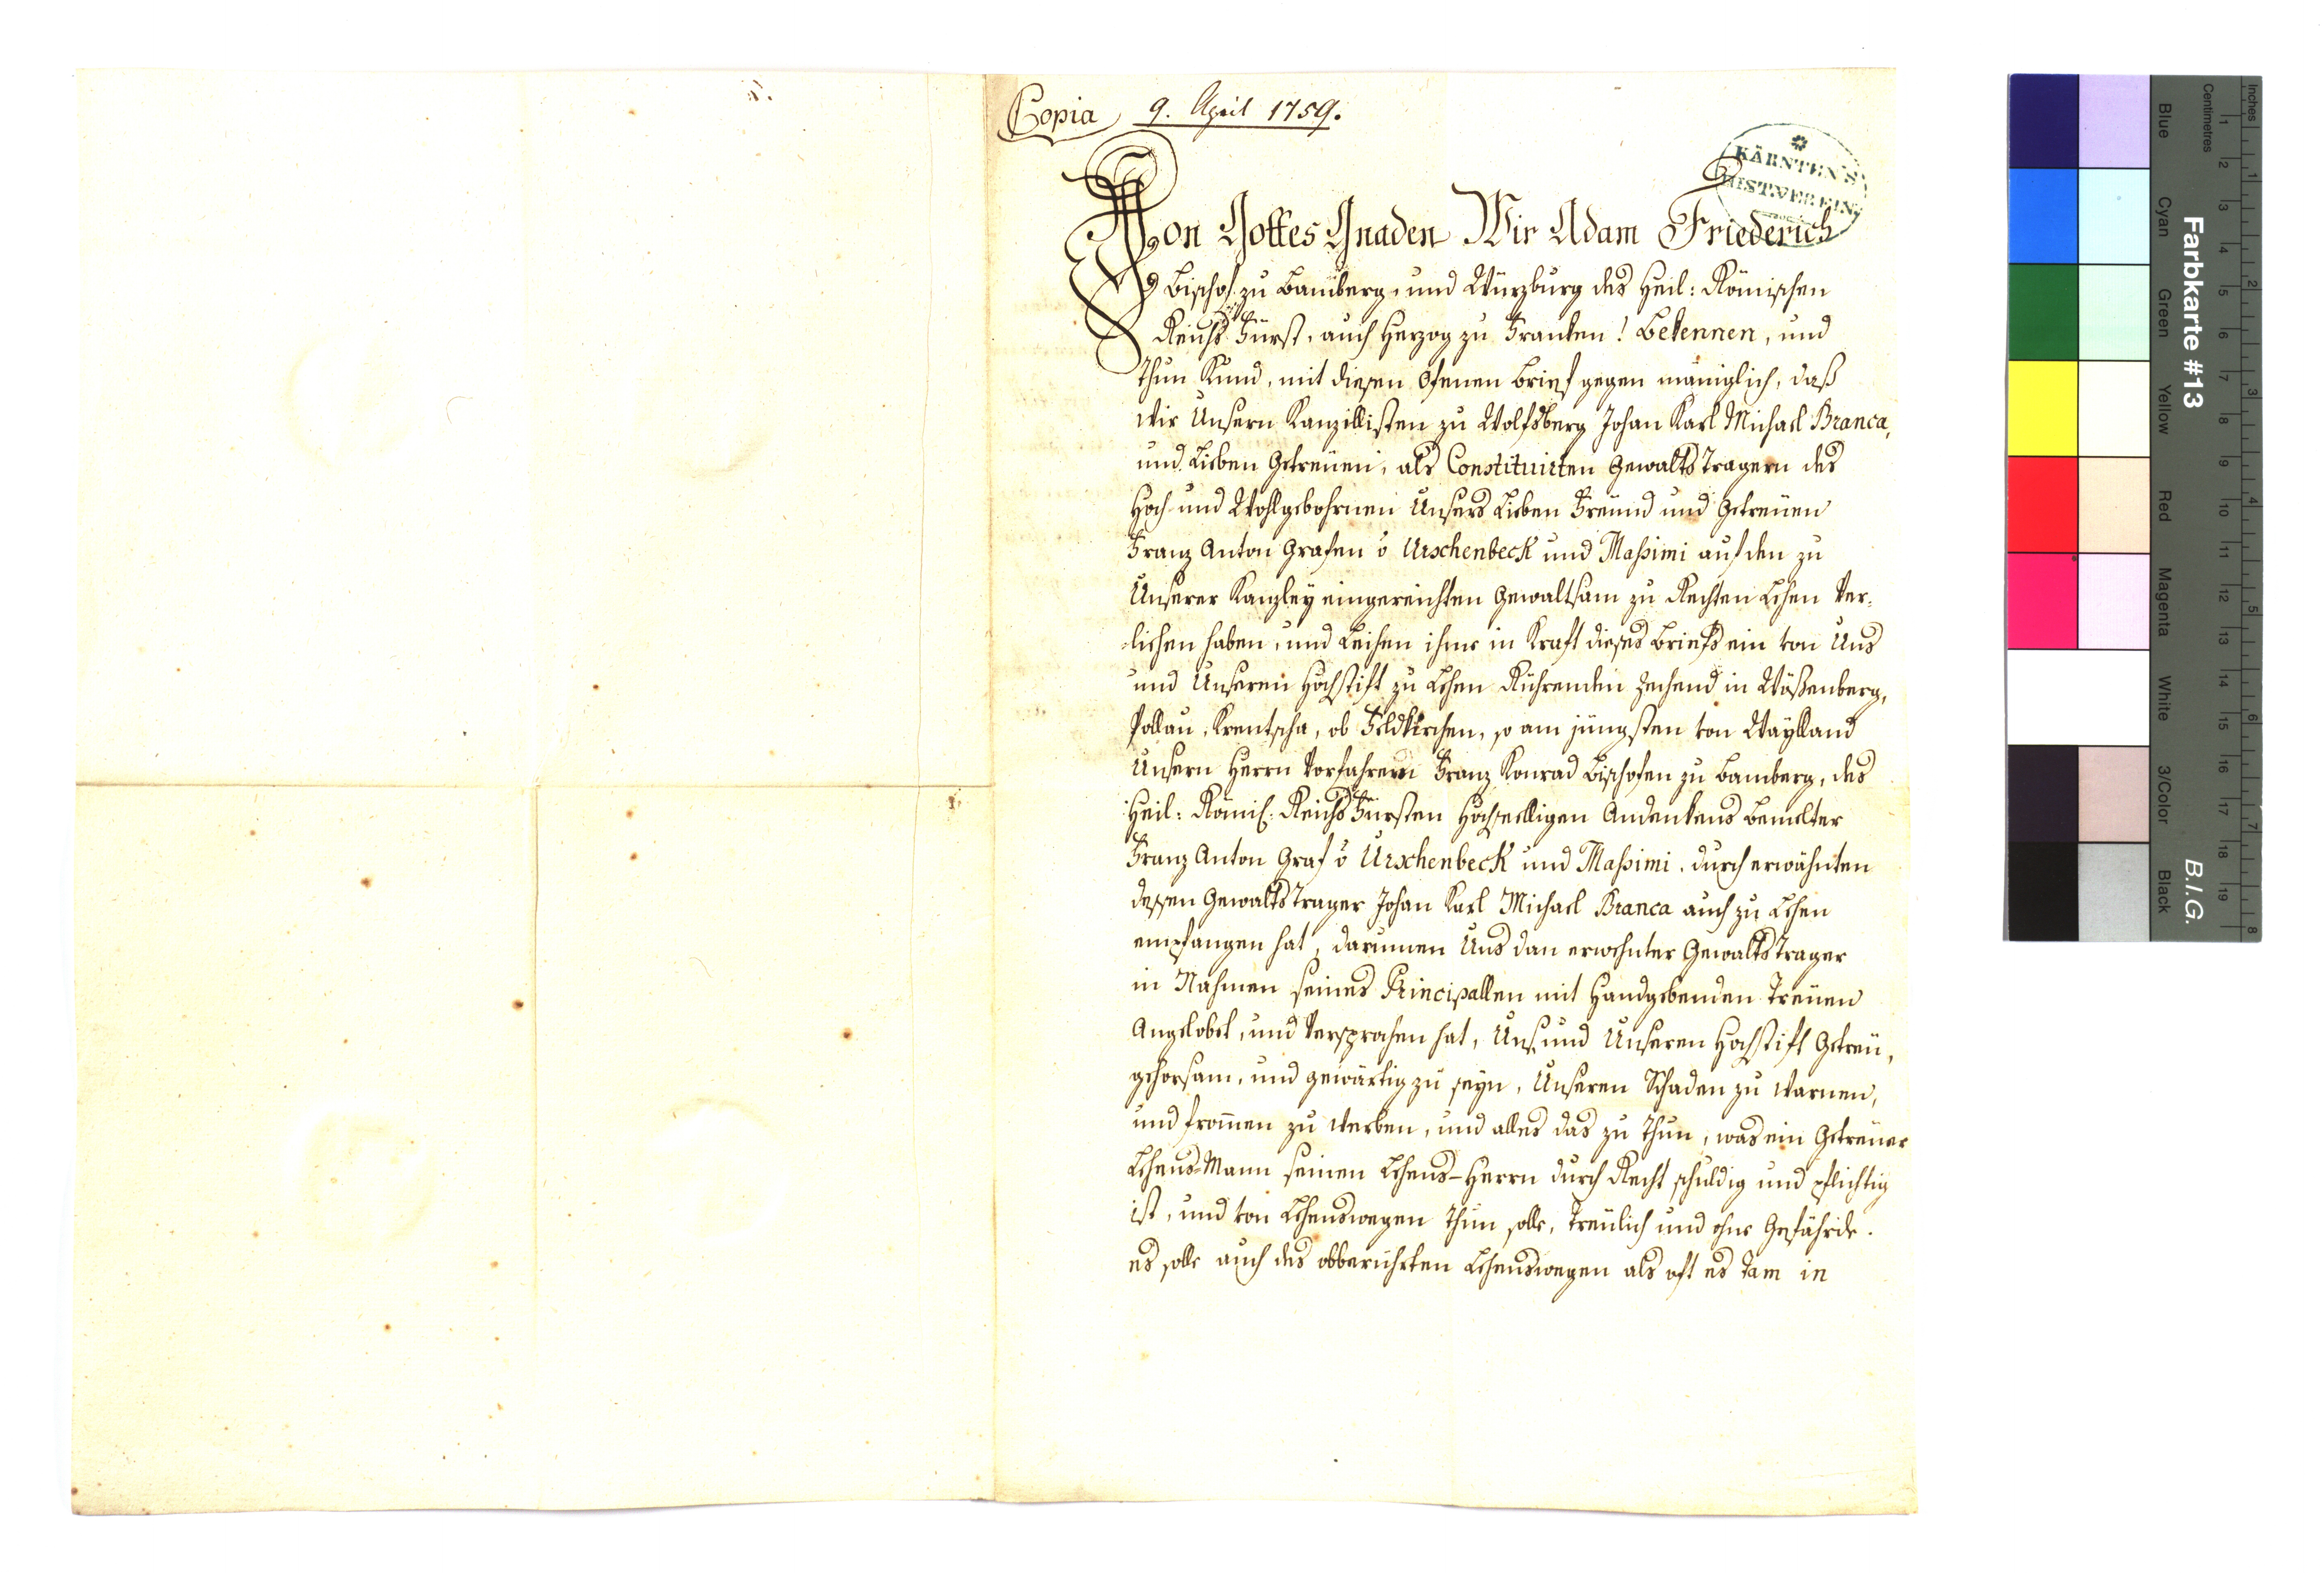 Copia 9. April 1759.
KÄRNTEN'S
HIST. VEREIN
Von Gottes Gnaden Wir Adam Friederich
Bischof zu Bamberg, und Würzburg des Heil: Römischen
Reichs Fürst, auch Herzog zu Franken! Bekennen, und
Thun Kund, mit diesen Ofenen Brief gegen mäniglich, daß
Wir Unsern Kanzillisten zu Wolfsberg Johan Karl Michael Branca,
und Lieben Getreüen, als Constituirten Gewalts Tragern des
Hoch- und Wohlgebohrnen Unsers Lieben Freünd und Getreüen
Franz Anton Grafen v Urschenbeck und Maßimi auf den zu
Unserer Kanzley eingereichten Gewaltsam zu Rechten Lehen Ver-
liehen haben, und Leihen ihme in Kraft dieses Briefs ein von Uns
und Unseren Hochstift zu Lehen Rührenden Zechend in Wäßenberg,
Pollau, Krentscha, ob Feldkirchen, so am jüngsten von Waylland
Unsern Herrn Vorfahrern Franz Konrad Bischofen zu Bamberg, des
Heil: Römis: Reichs Fürsten Hochseelligen Andenkens Bemelter
Franz Anton Graf v Urschenbeck und Maßimi, durch erwähnten
dessen Gewalts Trager Johan Karl Michael Branca auch zu Lehen
empfangen hat, darumen Uns dan erwehnter Gewalts Trager
in Nahmen seines Principallen mit Handgebenden Treüen
Angelobet, und Versprochen hat, Uns, und Unseren Hochstift Getreü,
gehorsam, und gewärtig zu seyn, Unseren Schaden zu Warnen,
und fromen zu Werben, und alles das zu Thun, was ein Getreüer
Lehens-Mann seinen Lehens-Herrn durch Recht schuldig und pflichtig
ist, und von Lehenswegen Thun solle, Treülich und ohne Gefährde.
es solle auch des obberührten Lehenswegen als oft es Zam in
Farbkarte #13
B.I.G.
Inches
Centimetres
1 2 3 4 5 6 7 8 9 10 11 12 13 14 15 16 17 18 19
1 2 3 4 5 6 7 8
Blue
Cyan
Green
Yellow
Red
Magenta
White
3/Color
Black